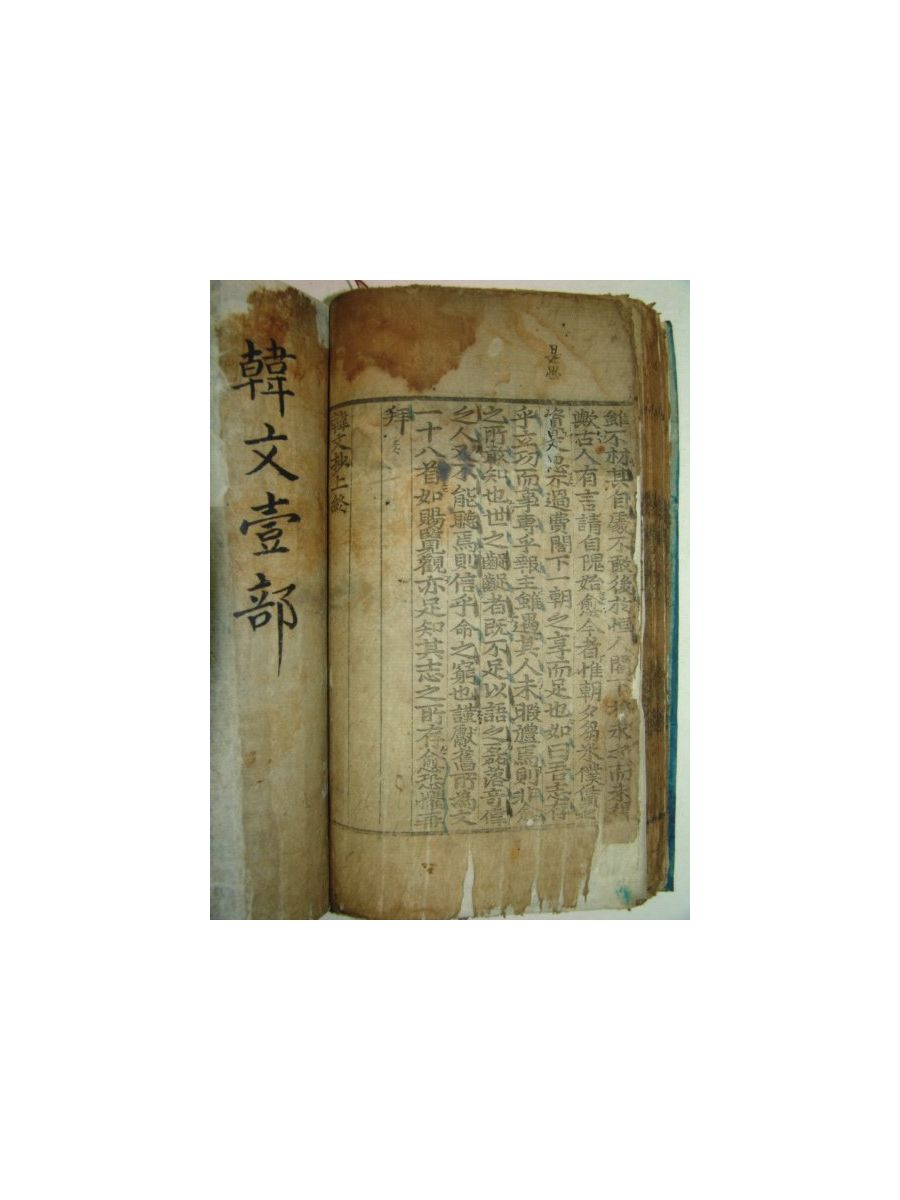 雖不材其自處不敢後於恒人閤下將求之而未得
歟古人有言請自隗始愈今者惟朝夕芻米僕賃
資是急不過費閤下一朝之享而足也如曰吾志存
乎立功而事專乎報主雖遇其人未暇禮焉則非愈
之所敢知也世之齪齪者既不足以語之磊落奇偉
之人又不能聽焉則信乎命之窮也謹獻舊所為文
一十八首如賜覽觀亦足知其志之所存愈恐懼再
拜
韓文抄上終
韓文壹部